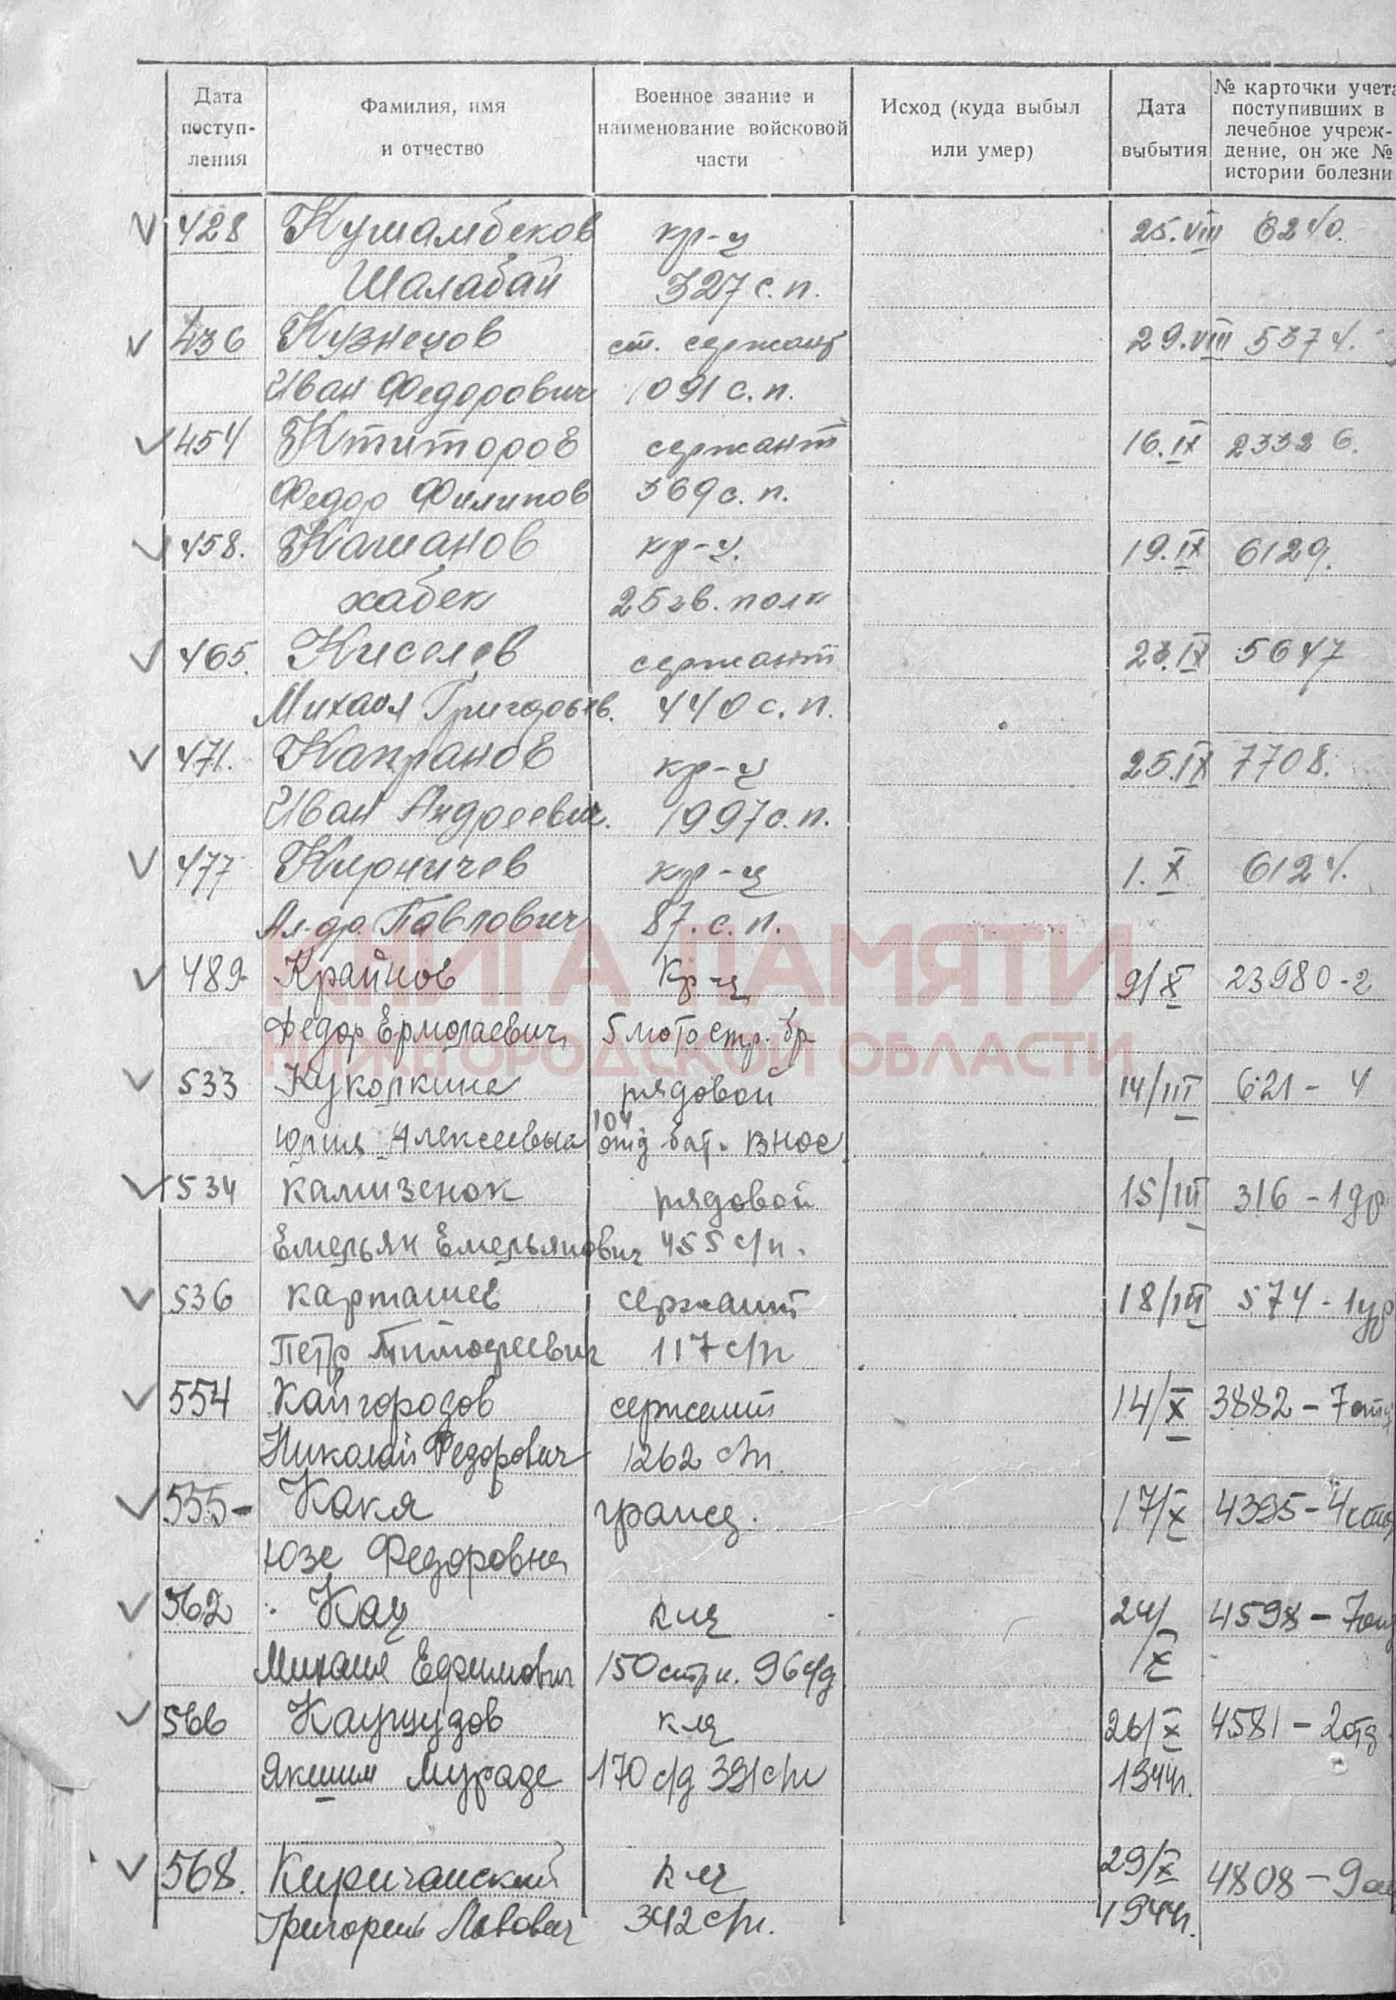 Дата поступ- ления
Фамилия, имя и отчество
Военное звание и наименование войсковой части
Исход (куда выбыл или умер)
Дата выбытия
№ карточки учета поступивших в лечебное учреж- дение, он же № истории болезни
428 Кушамбеков кр-ц 25.VIII 6240.
Шалабай 327 с.п.
436 Кузнецов ст. сержант 29.VIII 5374.
Иван Федорович 1091 с.п.
454 Ктиторов сержант 16.IX 23326.
Федор Филипов 369 с.п.
458. Кашанов кр-ц. 19.IX 6129.
хабек 25 гв. полк
465. Киселев сержант 23.IX 5647
Михаил Григорьев. 440 с.п.
471. Капранов кр-ц 25.IX 7708.
Иван Андреевич. 1997 с.п.
477 Кирпичев кр-ц 1.X 6124.
Ал-др. Павлович 87. с.п.
КНИГА ПАМЯТИ
489 Крайнов Кр-ц 9/X 23980-2
Федор Ермолаевич 5 мотостр. бр
НИЖЕГОРОДСКОЙ ОБЛАСТИ
533 Куколкина рядовой 14/III 621-4
Юлия Алексеевна 104 отд бат. ВНОС
534 Камизенок рядовой 15/III 316-1
Емельян Емельянович 455 с/п.
536 Карташев сержант 18/III 574-1
Петр Тимофеевич 117 с/п
554 Кайгородов сержант 14/X 3882-7
Николай Федорович 1262 с/п.
555- Какя гражд. 17/X 4395-4
Юзе Федоровна
562 Кац к-ц 24/X 4598-7
Михаил Ефимович 150 стр п. 96 с/д
566 Каущудов к-ц 26/X 4581-2отд
Якшим Мураде 170 с/д 391 с/п 1944г.
568. Киричанский к-ц 29/X 4808-9
Григорий Львович 342 с/п. 1944г.